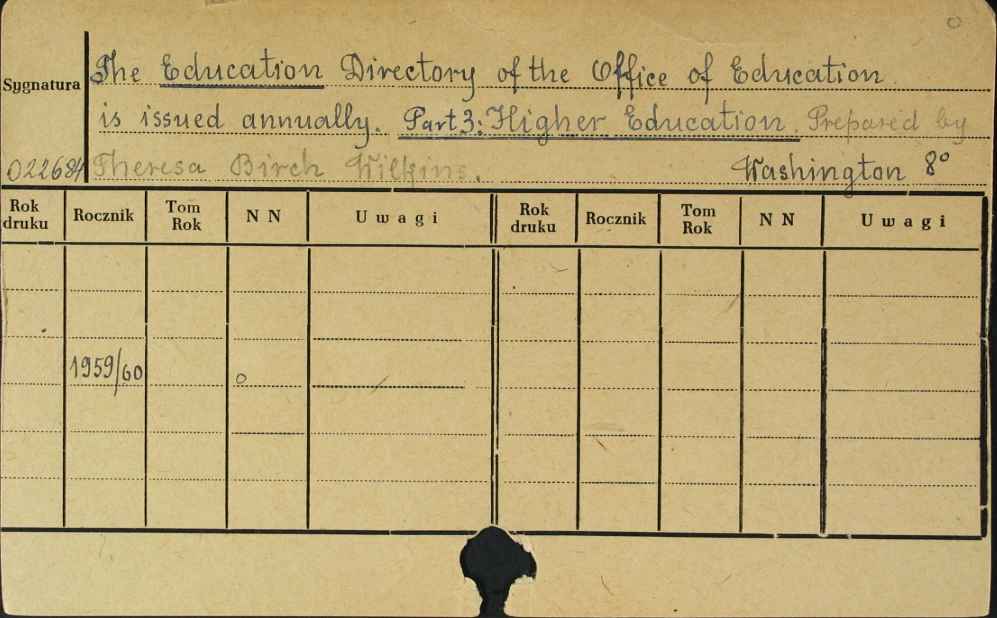 The Education Directory of the Office of Education
Sygnatura
is issued annually. Part 3: Higher Education. Prepared by
022684 Theresa Birch Wilkins. Washington 8°
Rok druku Rocznik Tom Rok N N Uwagi Rok druku Rocznik Tom Rok N N Uwagi
1959/60 o